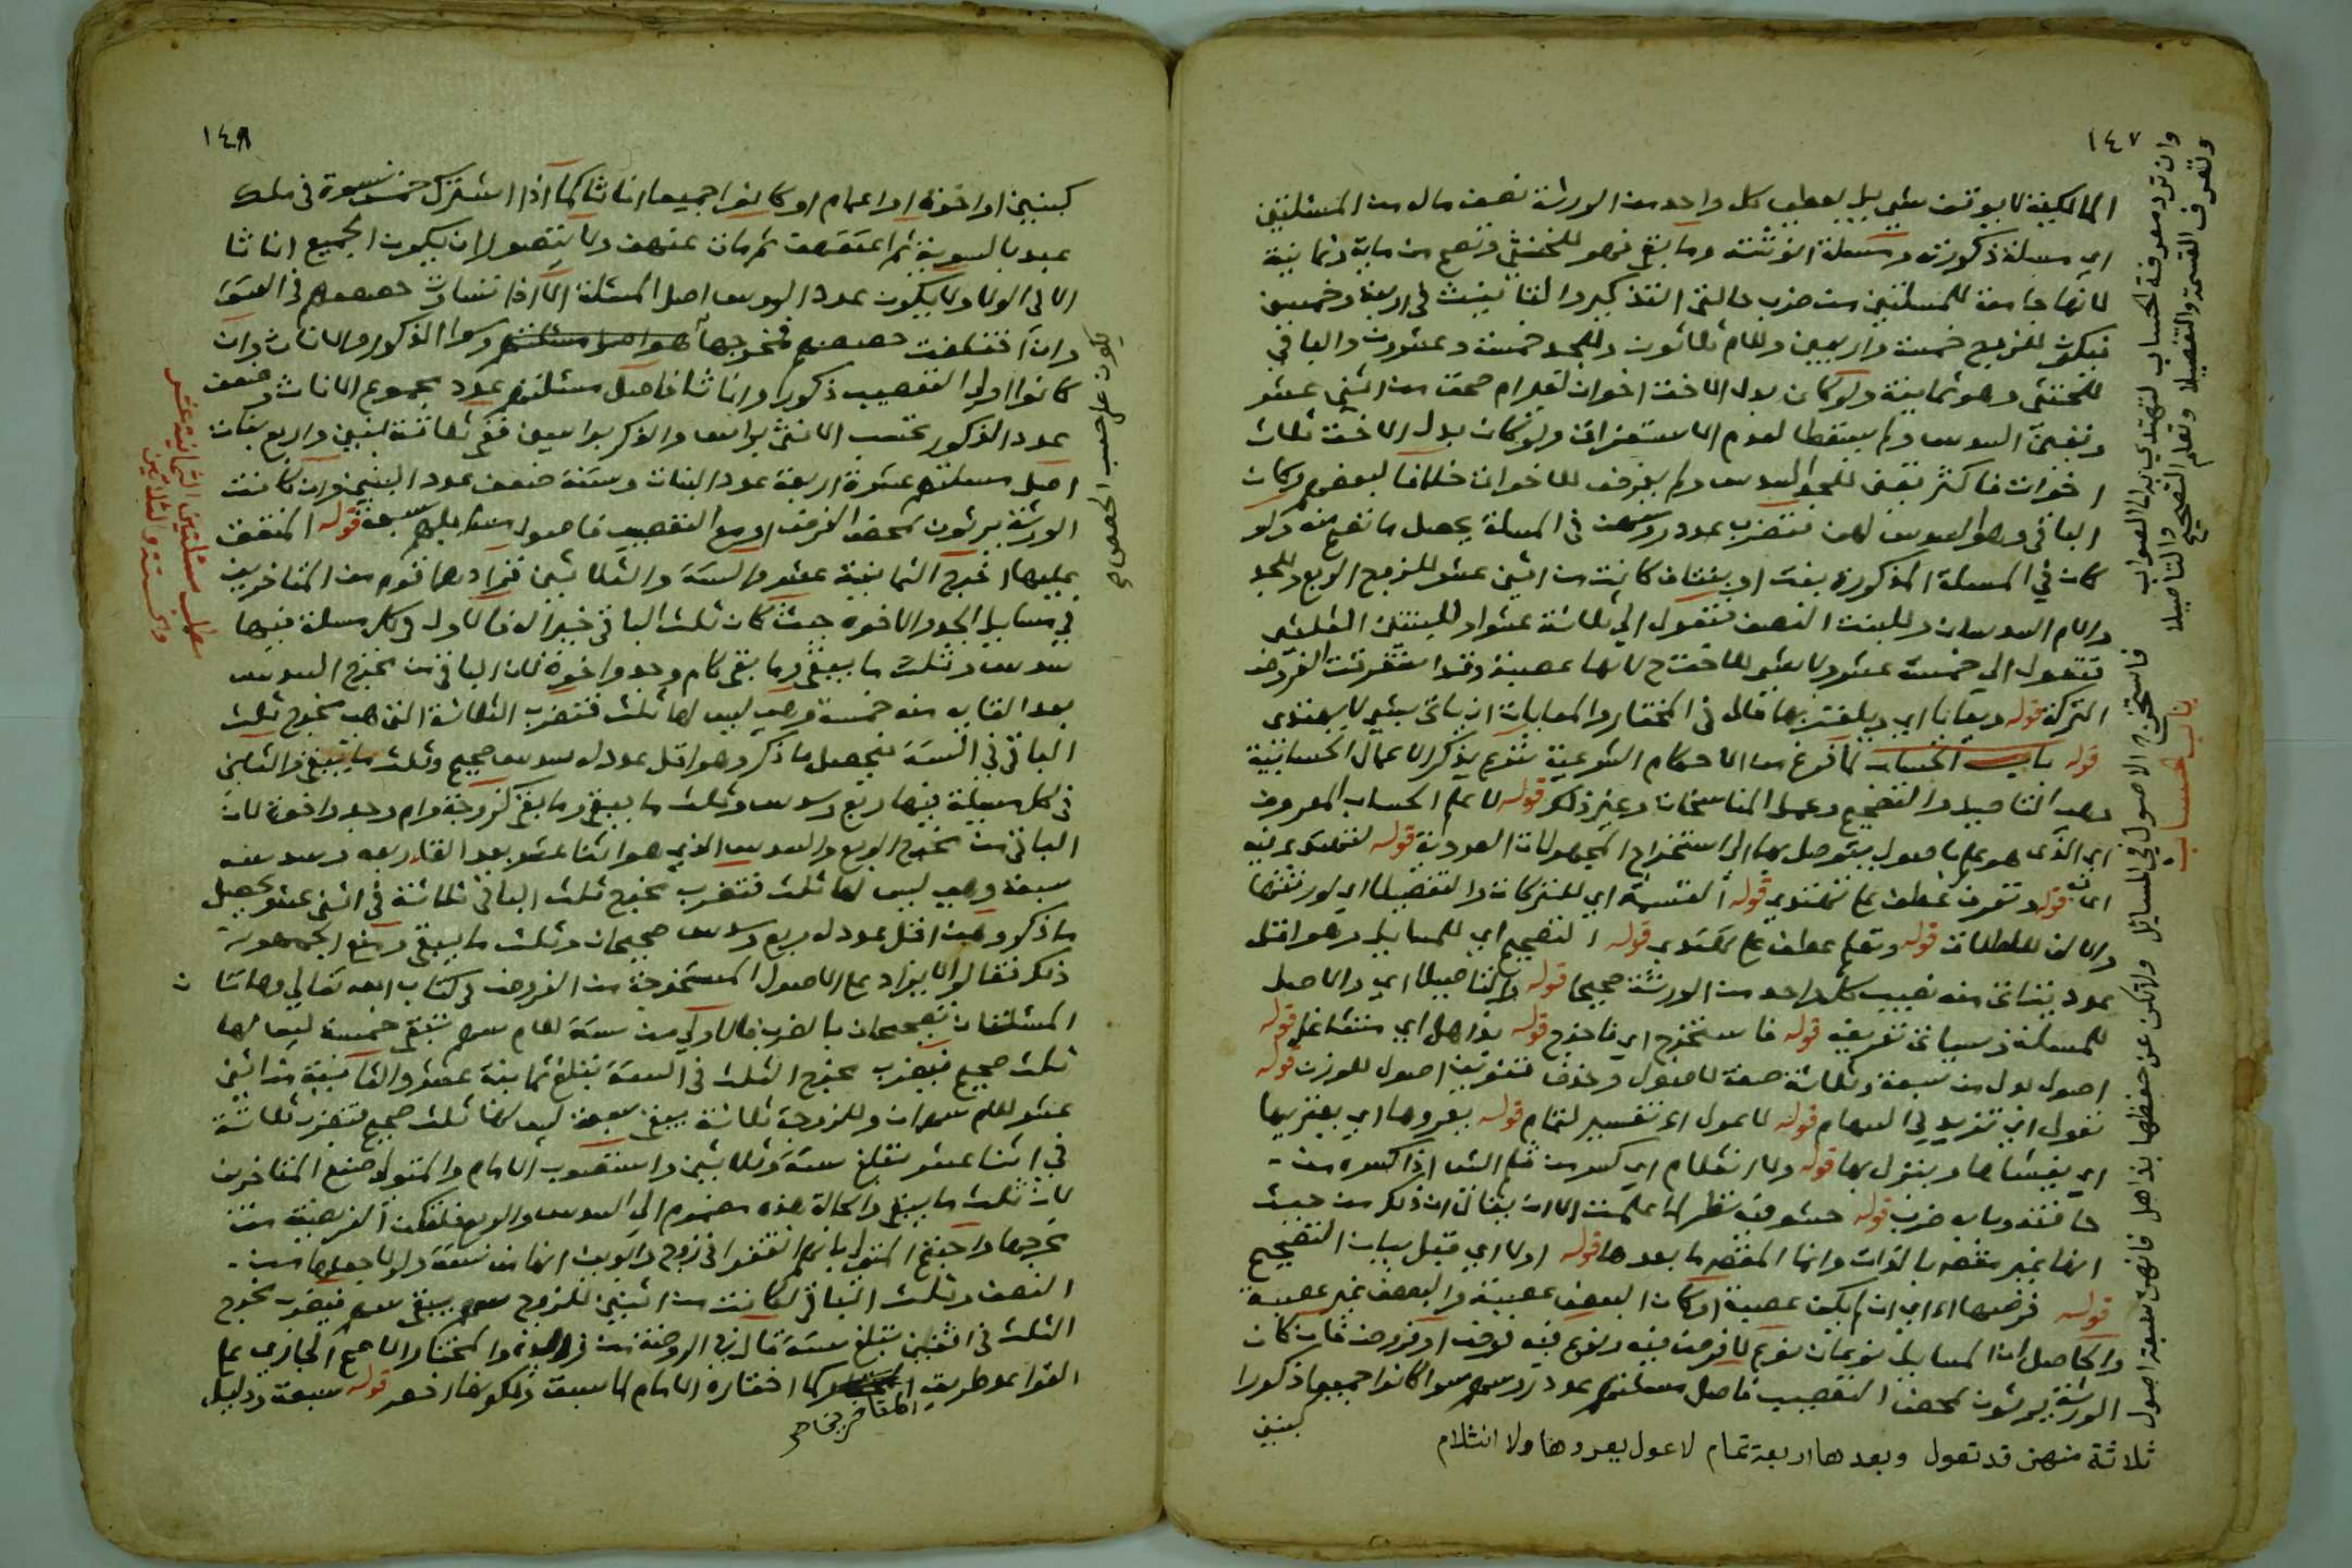 ١٤٧
المالكية لا يوقف شيء بل يعطى كل واحد من الورثة نصف ماله من المسئلتين
اي مسئلة ذكورته ومسئلة انوثته وما بقي فهو للخنثى وتصح من ماية وثمانية
لانها جامعة للمسئلتين من ضرب حالتى التذكير والتانيث في اربعة وخمسين
فيكون للزوج خمسة واربعين وللام ثلاثون وللجد خمسة وعشرون والباقي
للخنثى وهو ثمانية ولو كان بدل الاخت اخوان لغير ام صحت من اثني عشر
وتعين السدس ولم يسقطا لعدم الاستغراق ولو كان بدل الاخت ثلاث
اخوات فاكثر تعين للجد السدس ولم يفرض للاخوات خلافا لبعضهم وكان
الباقي وهو السدس لهن فتضرب عدد روسهن في المسئلة يحصل ما تصح منه ولو
كان في المسئلة المذكورة بنت او بنتان كانت من اثني عشر للزوج الربع وللجد
والام السدسان وللبنت النصف فتعول الى ثلاثة عشر او للبنتين الثلثين
فتعول الى خمسة عشر ولا شيء للاخت ح لانها عصبة وقد استغرقت الفروض
التركة قوله ويعايا اي ويلغز بها قال في المختار والمعاياة ان ياتي بشيء لا يهتدى
قوله باب الحساب لما فرغ من الاحكام الشرعية شرع يذكر الاعمال الحسابية
وهي التاصيل والتصحيح وعمل المناسخات وغير ذلك قوله لا علم الحساب المعروف
اي الذي هو علم باصول يتوصل بها الى استخراج المجهولات العددية قوله لتهتدي فيه
اي به قوله وتعرف عطف على تهتدي قوله القسمة اي للتركات والتفصيلا اي لورثتها
والالف للاطلاق قوله وتعلم عطف على تهتدي قوله التصحيح اي للمسايل وهو اقل
عدد يتاتى منه نصيب كل واحد من الورثة صحيحا قوله والتاصيلا اي والاصل
للمسئلة وسياتي تعريفه قوله فاستخرج اي فاخرج قوله بذاهل اي متشاغل قوله
اصول بدل من سبعة وثلاثة صفة لاصول وحذف تنوين اصول للوزن قوله
تعول اي تزيد في السهام قوله لا عول اء تفسير لتمام قوله يعروها اي يعتريها
اي يغشاها وينزل بها قوله ولا انثلام اي كسر من ثلم الشيء اذا كسره من
حافته وبابه ضرب قوله حشو فيه نظر لما علمت الا ان يقال ان ذلك من حيث
انها غير مقصودة بالذات وانما المقصود ما بعدها قوله اولا اي قبل بيان التصحيح
قوله فرضها اء اي ان لم يكن عصبة او كان البعض عصبة والبعض غير عصبة
والحاصل ان المسايل نوعان نوع لا فرض فيه ونوع فيه فرض او فروض فان كان
الورثة يرثون بمحض التعصيب فاصل مسئلتهم عدد روسهم سوا كانوا جميعا ذكورا
كبنين
ثلاثة منهن قد تعول وبعدها اربعة تمام لا عول يعروها ولا انثلام
وان ترد معرفة الحساب لتهتدي به الى الصواب
وتعرف القسمة والتفصيلا وتعلم التصحيح والتاصيلا
فاستخرج الاصول في المسائل ولا تكن عن حفظها بذاهل فانهن سبعة اصول
باب الحساب
١٤٨
كبنين او اخوة او اعمام او كانوا جميعا اناثا كما اذا اشترك خمس نسوة في ملك
عبد بالسوية ثم اعتقنه ثم مات عنهن ولا يتصور ان يكون الجميع اناثا
الا في الولا ولا يكون عدد الروس اصل المسئلة الا اذا تساوت حصصهم في العتق
وان اختلفت حصصهم فمخرجها هو اصل مسئلتهم وسوا الذكور والاناث وان
كانوا اولى التعصيب ذكورا واناثا فاصل مسئلتهم عدد مجموع الاناث وضعف
عدد الذكور تحسب الانثى براس والذكر براسين ففي ثلاثة بنين واربع بنات
اصل مسئلتهم عشرة اربعة عدد البنات وستة ضعف عدد البنين وان كانت
الورثة يرثون بمحض الفرض او مع التعصيب فاصول مسايلهم سبعة قوله المتفق
عليها اخرج الثمانية عشر والستة والثلاثين فزادهما قوم من المتاخرين
في مسايل الجد والاخوة حيث كان ثلث الباقي خيرا له فالاول في كل مسئلة فيها
سدس وثلث ما يبقى وما بقي كام وجد واخوة لان الباقي من مخرج السدس
بعد القايه منه خمسة وهي ليس لها ثلث فتضرب الثلاثة التي هي مخرج ثلث
الباقي في الستة يحصل ما ذكر وهو اقل عدد له سدس صحيح وثلث ما يبقى والثاني
في كل مسئلة فيها ربع وسدس وثلث ما يبقى وما بقي كزوجة وام وجد واخوة لان
الباقي من مخرج الربع والسدس الذي هو اثنا عشر بعد القا ربعه وسدسه
سبعة وهي ليس لها ثلث فتضرب مخرج ثلث الباقي ثلاثة في اثني عشر يحصل
ما ذكر وهي اقل عدد له ربع وسدس صحيحان وثلث ما يبقى ومنع الجمهور
ذلك فقالوا لا يزاد على الاصول المستخرجة من الفروض في كتاب الله تعالى وهاتان
المسئلتان تصحيحان بالضرب فالاولى من ستة للام سهم تبقى خمسة ليس لها
ثلث صحيح فيضرب مخرج الثلث في الستة تبلغ ثمانية عشر والثانية من اثني
عشر للام سهمان وللزوجة ثلاثة يبقى سبعة ليس لها ثلث صحيح فتضرب ثلاثة
في اثنا عشر تبلغ ستة وثلاثين واستصوب الامام والمتولي صنع المتاخرين
لان ثلث ما يبقى والحالة هذه مضموم الى السدس والربع فلتكن الفريضة من
مخرجها واحتج المتولي بانهم اتفقوا في زوج وابوين انها من ستة ولولا جعلها من
النصف وثلث الباقي لكانت من اثنين للزوج سهم يبقى سهم فيضرب مخرج
الثلث في اثنين تبلغ ستة قال في الروضة والمختار الاصح الجاري على
القواعد طريق المتاخرين كما اختاره الامام لما سبق ذلكونها اخصر قوله سبعة ودليل
يكون على حسب الحصص
مطلب مسئلتين الثمانية عشر
والستة والثلاثين